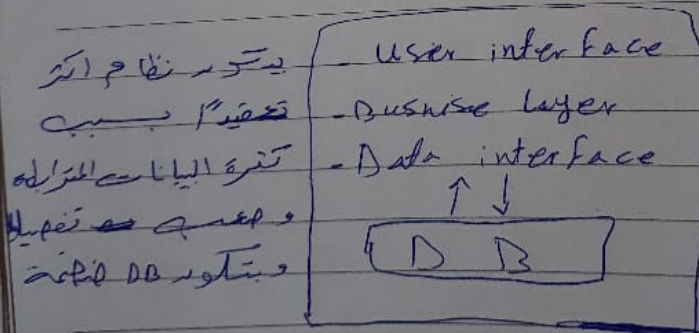 - User interface
- Busnise Layer
- Data interface
DB
بيتكون نظام اكثر
تعقيداً بسبب
كثرة البيانات المترابطة
وصعب تفصيلها
وبتكون DB ضخمة